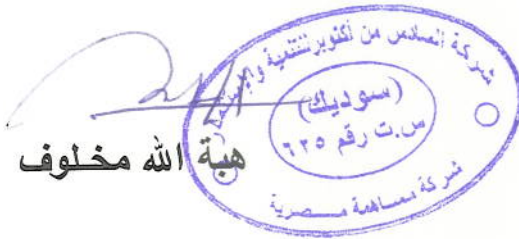 شركة السادس من أكتوبر للتنمية والاستثمار
(سوديك)
س.ت رقم ٦٢٥
شركة مساهمة مصرية
هبة الله مخلوف